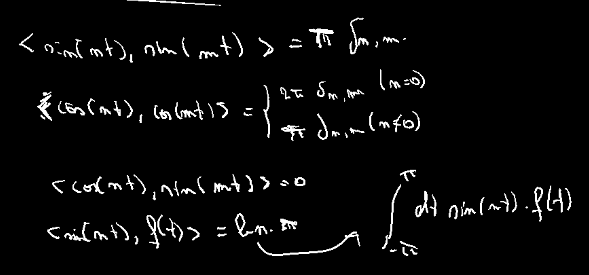 < sin(nt), sin(mt) > = π δn,m.
< cos(nt), cos(mt) > = { 2π δn,m (n=0)
π δn,m (n≠0)
< cos(nt), sin(mt) > = 0
< sin(nt), f(t) > = bn. π → ∫_{-π}^{π} dt sin(nt) . f(t)